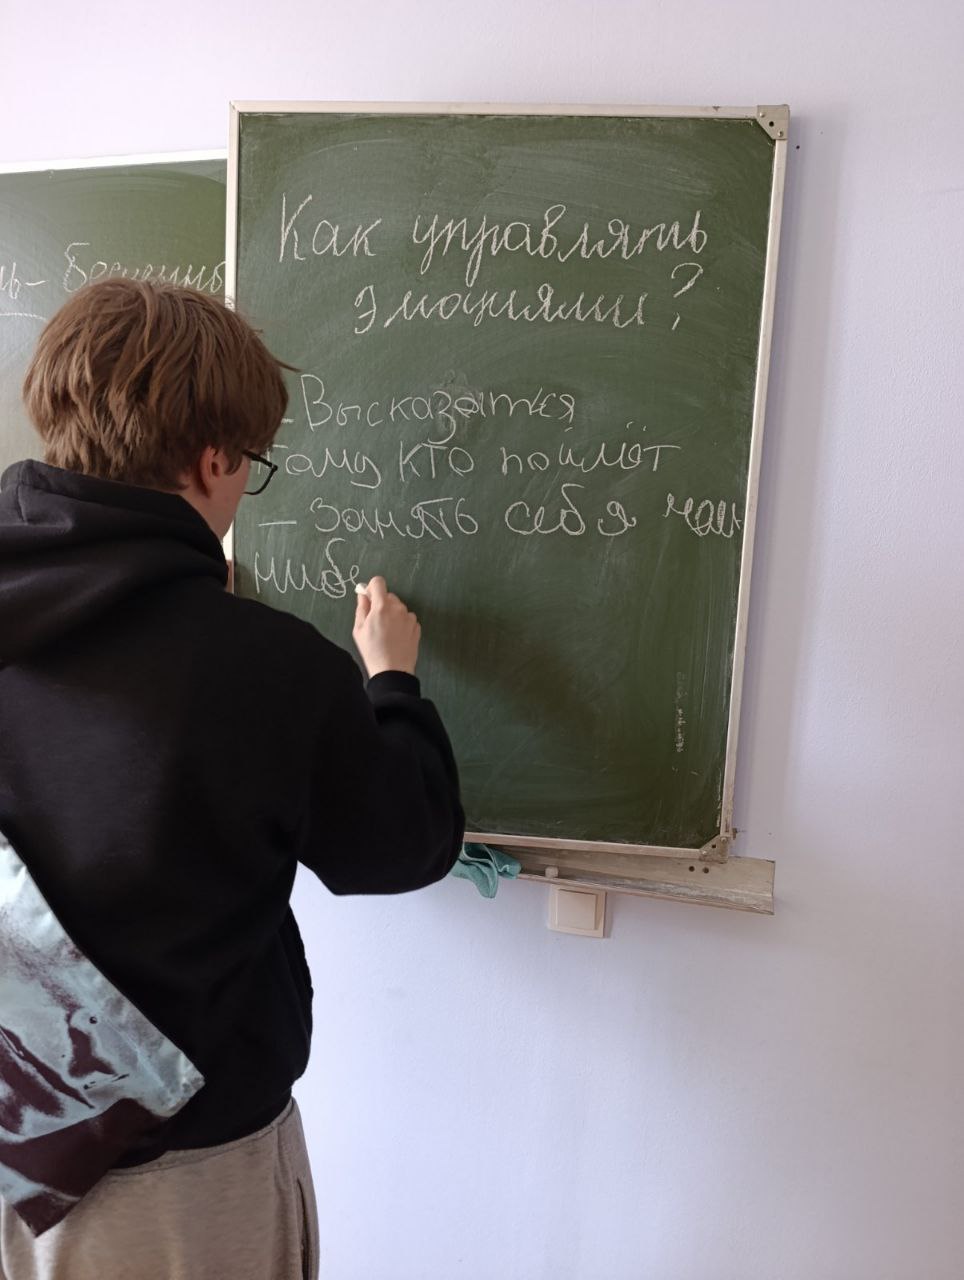 Как управлять
эмоциями?
- Высказаться
тому кто поймёт
- занять себя
нибу